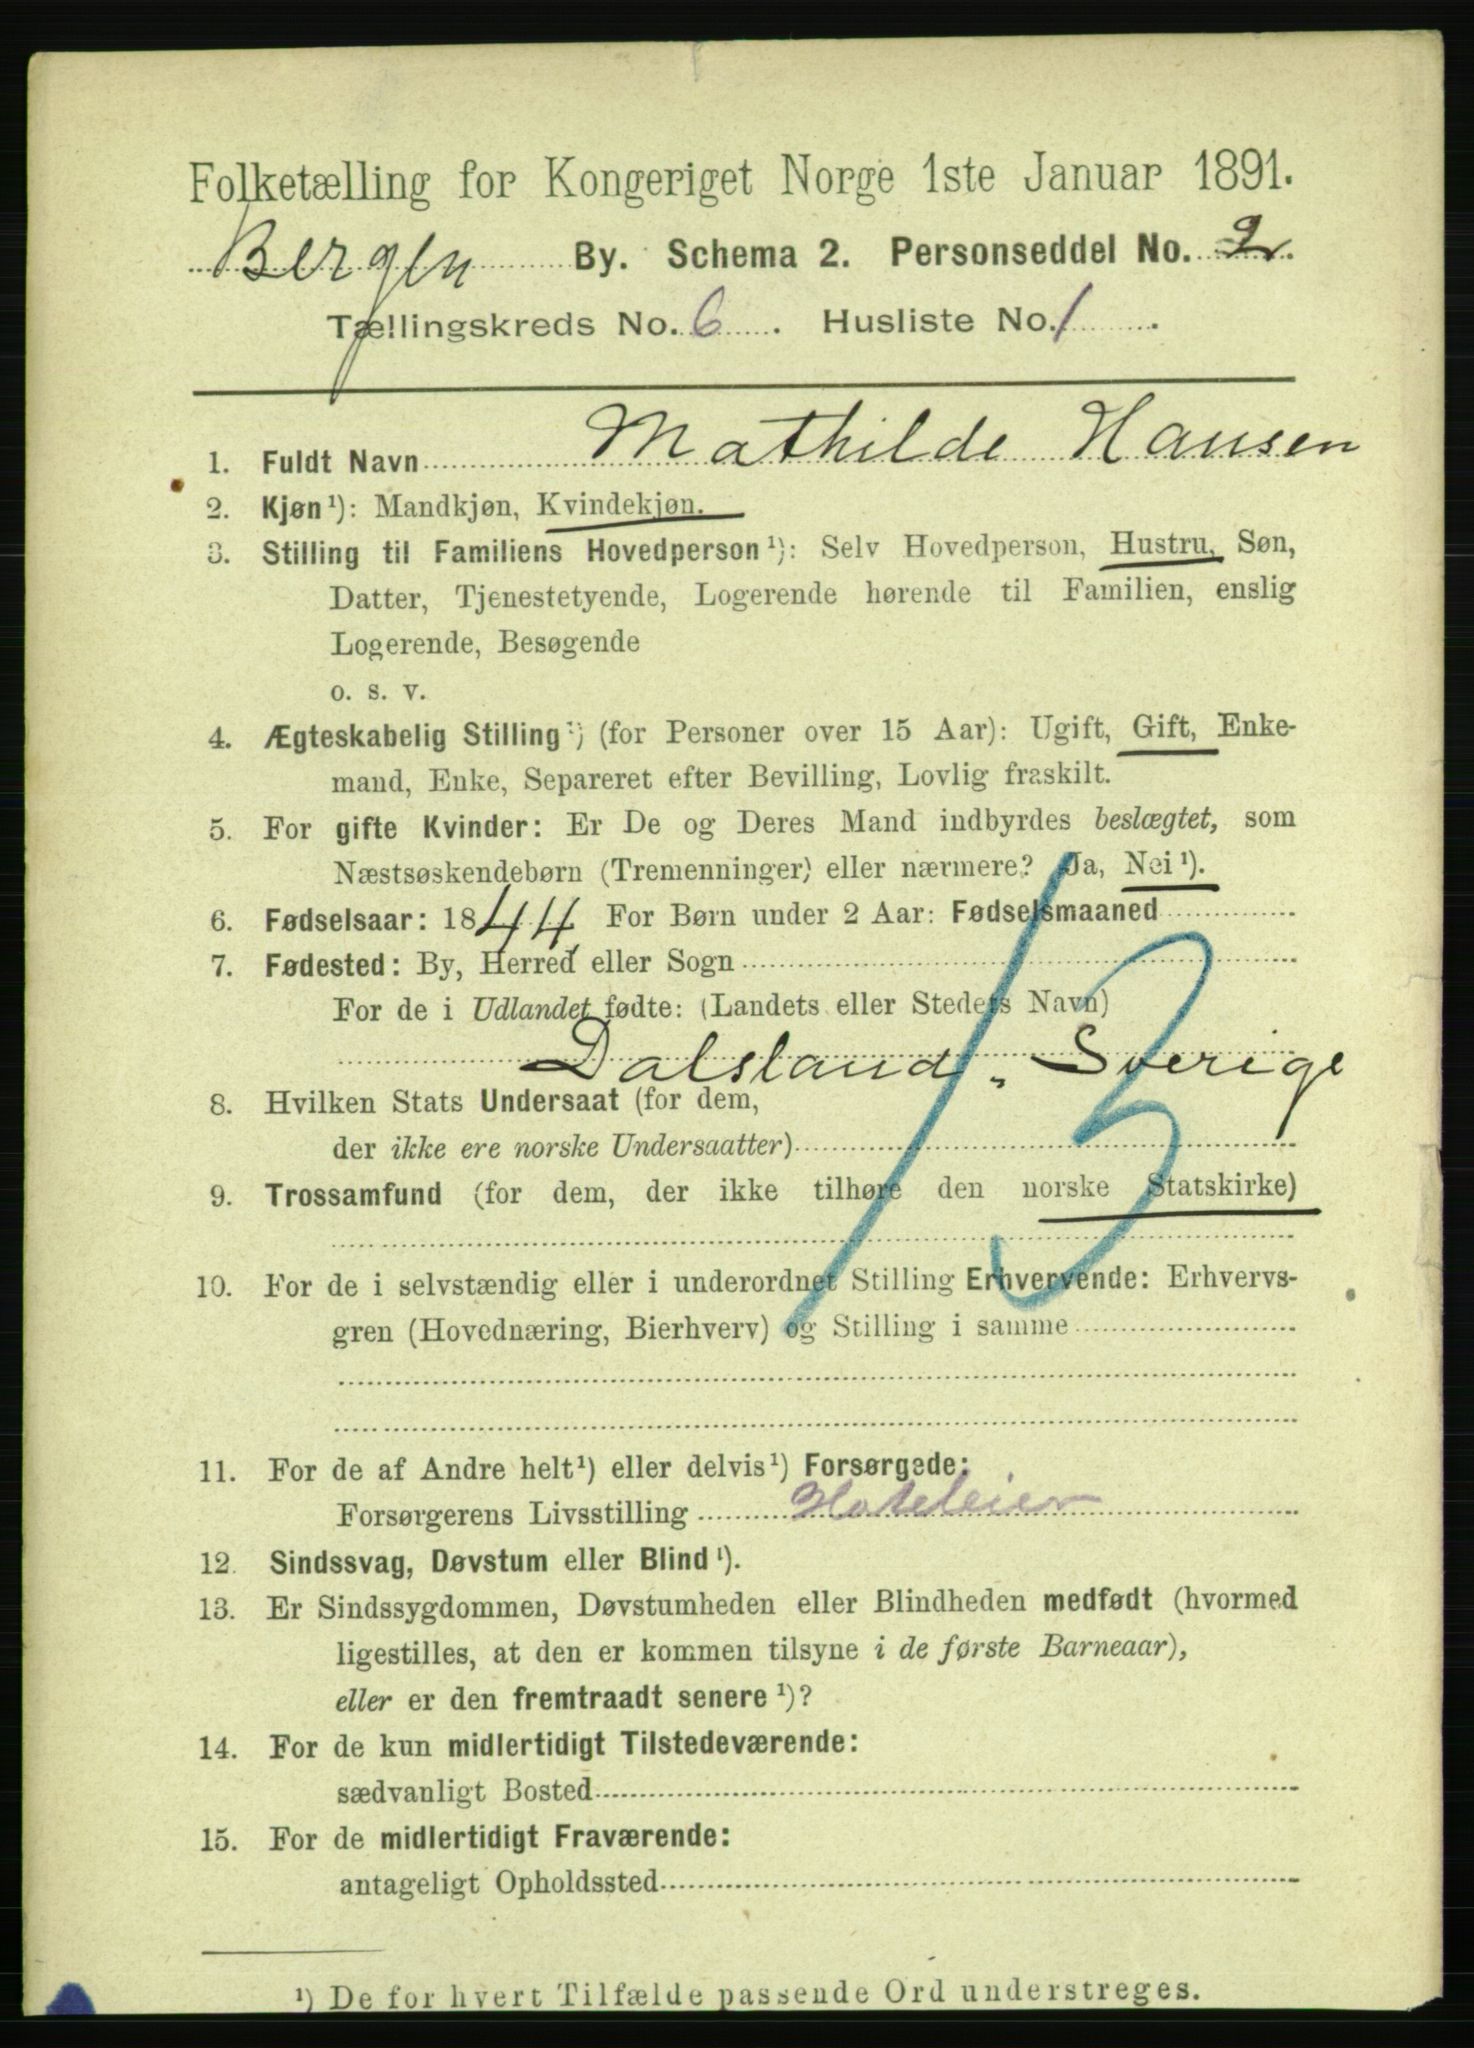 Folketælling for Kongeriget Norge 1ste Januar 1891.
Bergen By. Schema 2. Personseddel No. 2.
Tællingskreds No. 6. Husliste No. 1.
1. Fuldt Navn Mathilde Hansen
2. Kjøn¹): Mandkjøn, Kvindekjøn.
3. Stilling til Familiens Hovedperson¹): Selv Hovedperson, Hustru, Søn,
Datter, Tjenestetyende, Logerende hørende til Familien, enslig
Logerende, Besøgende
o. s. v.
4. Ægteskabelig Stilling¹) (for Personer over 15 Aar): Ugift, Gift, Enke-
mand, Enke, Separeret efter Bevilling, Lovlig fraskilt.
5. For gifte Kvinder: Er De og Deres Mand indbyrdes beslægtet, som
Næstsøskendebørn (Tremenninger) eller nærmere? Ja, Nei¹).
6. Fødselsaar: 1844 For Børn under 2 Aar: Fødselsmaaned
7. Fødested: By, Herred eller Sogn
For de i Udlandet fødte: (Landets eller Stedets Navn)
Dalsland, Sverige
8. Hvilken Stats Undersaat (for dem,
der ikke ere norske Undersaatter)
9. Trossamfund (for dem, der ikke tilhøre den norske Statskirke)
10. For de i selvstændig eller i underordnet Stilling Erhvervende: Erhvervs-
gren (Hovednæring, Bierhverv) og Stilling i samme
11. For de af Andre helt¹) eller delvis¹) Forsørgede:
Forsørgerens Livsstilling Hoteleier
12. Sindssvag, Døvstum eller Blind¹).
13. Er Sindssygdommen, Døvstumheden eller Blindheden medfødt (hvormed
ligestilles, at den er kommen tilsyne i de første Barneaar),
eller er den fremtraadt senere¹)?
14. For de kun midlertidigt Tilstedeværende:
sædvanligt Bosted
15. For de midlertidigt Fraværende:
antageligt Opholdssted
¹) De for hvert Tilfælde passende Ord understreges.